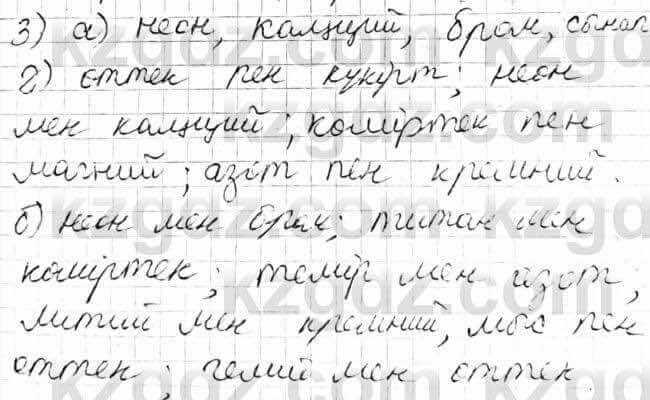 3) а) неон, калций, бром, сынап
г) оттек пен күкірт; неон
мен калций; көміртек пен
магний; азот пен кремний.
б) неон мен бром; титан мен
көміртек; темір мен азот;
литий мен кремний, мыс пен
оттек; гелий мен оттек.
kzgdz.com